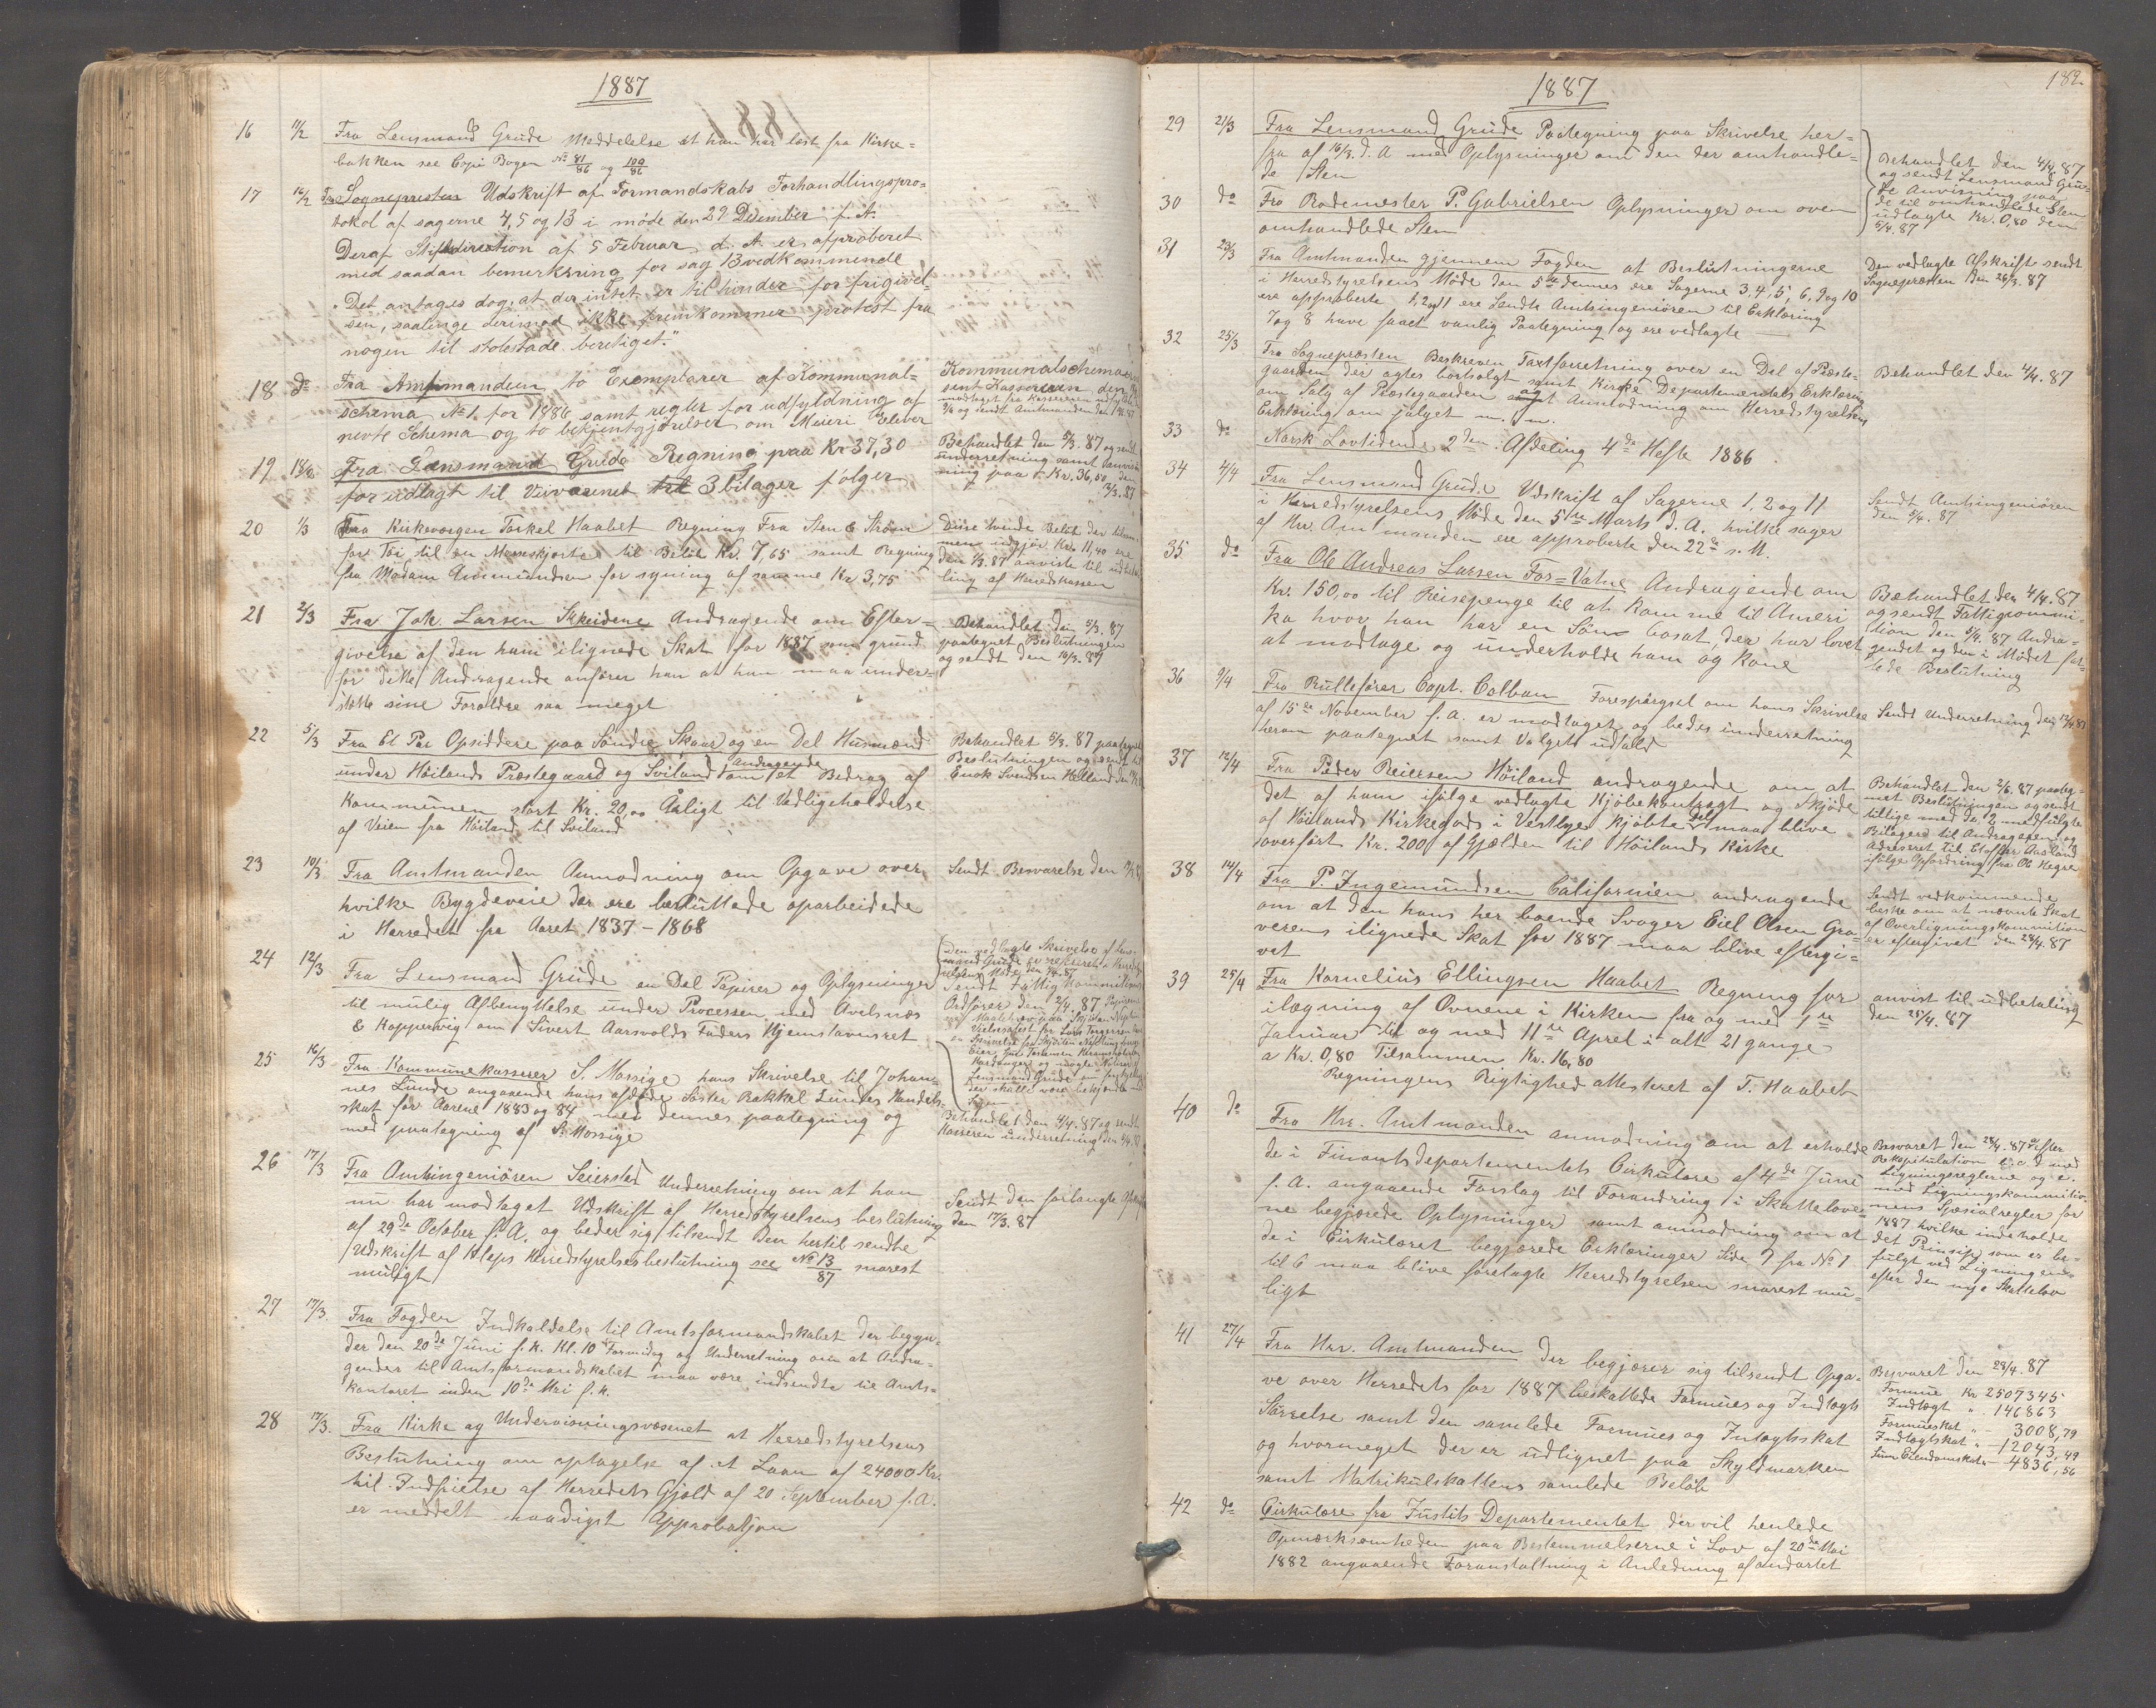 1887
16 11/2 Fra Lensmand Grude Meddelelse at han har læst fra Kirke=
bakken see Copi Bogen No 81/86 og 100/86
17 16/2 Fra Sognepresten Udskrift af Formandskabs Forhandlingspro=
tokol af sagerne 4, 5 og 13 i møde den 29 Desember f. A.
Deraf Stiftsdirection af 5 Februar d. A. er approberet
med saadan bemerkning for sag 13 vedkommende
"Det antages dog, at der intet er til hinder for frigivel-
sen, saalænge derimod ikke fremkommer protest fra
nogen til stolestade beretiget."
18 do Fra Amtmanden to Exemplarer af Kommunal=
schema No 1. for 1886 samt regler for udfyldning af
nevte Schema og to bekjentgjørelser om Meieri Elever
Kommunalschemaer
sent Kassereren den
modtaget fra Kassereren
og sendt Amtmanden den
19 18/2 Fra Lensmand Grude Regning paa Kr 37,30
for udlagt til Veivæsenet 3 bilager følger
Behandlet den 5/3. 87 og sendt
underretning samt anvis
ning paa Kr. 36,50 den
12/3. 87
20 1/3 Fra Kirkeværgen Torkel Haabet Regning Fra Sten & Strøm
for Tøi til en Messeskjorte til Beløb Kr. 7,65 samt Regning
fra Madam Ammundsen for syning af samme Kr 3,75
Disse tvende Beløb der tilsam
men udgjør Kr. 11,40 ere
den 1/3. 87 anviste til udbeta
ling af Herredskassen
21 2/3 Fra Joh. Larsen Skeidene Andragende om Efter=
givelse af den ham ilignede Skat for 1887 som grund
for dette Andragende anfører han at han maa under=
støtte sine Forældre saa meget
Behandlet den 5/3. 87
paategnet Beslutningen
og sendt den 10/3. 87
22 5/3 Fra Et Par Opsiddere paa Søndre Skaar og en Del Husmænd
under Høilands Prestegaard og Sviland Andragende om et Bidrag af
Kommunen stort Kr. 20,00 Aarligt til Vedligeholdelse
af Veien fra Høiland til Sviland
Behandlet 5/3. 87 paategnet
Beslutningen og sendt til
Enok Svendsen Helland den
23 10/3 Fra Amtmanden Anmodning om Opgave over
hvilke Bygdeveie der ere besluttede oparbeidede
i Herredet fra Aaret 1837 - 1868
Sendt Besvarelse den
24 12/3 Fra Lensmand Grude en Del Papirer og Oplysninger
til mulig Afbenyttelse under Processen med Avelsnæs
& Koppervig om Sivert Aarsvolds Faders Hjemstavnsret
Den vedlagte Skrivelse af Lens
mand Grude er refereret i Herreds
styrelsens Møde den 4/4. 87
Sendt Fattig Kommitions
Ordfører den 2/4. 87
Lensmand Grude
25 16/3 Fra Kommunekasserer S. Mossige hans Skrivelse til Johan=
nes Lunde angaaende hans afdøde Søster Rakkel Lundes Handels=
skat for Aarene 1883 og 84 med dennes paategning og
med paategning af S. Mossige
Behandlet den 4/4. 87 og sendt
Kasseren underretning den
26 17/3 Fra Amtsingeniøren Seiersted Underretning om at han
nu har modtaget Udskrift af Herredstyrelsens beslutning
af 29de October f. A. og beder sig tilsendt den hertil sendte
Udskrift af Kleps Herredstyrelsesbeslutning see No 13/87 snarest
muligt
Sendt den forlangte
den 17/3. 87
27 17/3. Fra Fogden Indkaldelse til Amtsformandskabet der begyn=
der den 20de Juni f. k. Kl. 10 Formidag og Underretning om at Andra=
gender til Amtsformandskabet maa være indsendte til Amts=
kontoret inden 10de Mai f. k.
28 17/3. Fra Kirke og Undervisningsvæsenet at Herredstyrelsens
Beslutning om optagelse af et Laan af 24000 Kr.
til Indfrielse af Herredets Gjæld af 20 September f. A.
er meddelt naadigst Approbation
1887
182
29 21/3 Fra Lensmand Grude Paategning paa Skrivelse her=
fra af 16/3. d. A med Oplysninger om den der omhandle=
de Sten
30 do Fra Rodemester P. Gabrielsen Oplysninger om oven
omhandlede Sten
Behandlet den 4/4. 87
og sendt Lensmand Gru=
de Anvisning paa
de til omhandlede Sten
udlagte Kr. 0,80 den
5/4. 87
31 23/3 Fra Amtmanden gjennem Fogden at Beslutningerne
i Herredstyrelsens Møde den 5te dennes ere Sagerne 3, 4, 5, 6, 9 og 10
ere approberte 1, 2 og 11 ere Sendte Amtsingeniøren til Erklæring
7 og 8 have faaet vanlig Paategning og ere vedlagte
Den vedlagte Afskrift sendt
Sognepræsten den 26/3. 87
32 25/3 Fra Sognepræsten Beskreven Taxtforretning over en Del af Præste=
gaarden der agtes bortsolgt samt Kirke Departementets Erklæring
om Salg af Præstegaarden og Anmodning om Herredstyrelsens
Erklæring om salget m. m.
Behandlet den 4/4. 87
33 do Norsk Lovtidende 2den Afdeling 4de Hefte 1886
34 4/4 Fra Lensmand Grude Udskrift af Sagerne 1, 2 og 11
i Herredstyrelsens Møde den 5te Marts d. A. hvilke sager
af Hr. Amtmanden ere approberte den 22de s. M.
Sendt Amtsingeniøren
den 5/4. 87
35 do Fra Ole Andreas Larsen Fos=Vatne Andragende om
Kr. 150,00 til Reisepenge til at komme til Ameri
ka hvor han har en Søn bosat, der har lovet
at modtage og underholde ham og Kone
Behandlet den 4/4. 87
og sendt Fattigkommi=
tion den 5/4. 87 Andra=
gendet og den i Mødet fat=
tede Beslutning
36 9/4 Fra Rullefører Capt. Colban Forespørgsel om hans Skrivelse
af 15de November f. A. er modtaget og bedes underretning
herom paategnet samt Valgets udfald
Sendt Underretning den 12/4. 87
37 12/4 Fra Peder Reiersen Høiland andragende om at
det af ham ifølge vedlagte Kjøbekontragt og Skjøde
af Høilands Kirkegods i Vestlye kjøbte Del maa blive
overført Kr. 200 af Gjælden til Høilands Kirke
Behandlet den 2/6. 87 paateg=
net Beslutningen og sendt
tillige med de 2 medfulgte
Bilager til Andrageren og
Adresseret til Elefter Aasland
ifølge Opfordring fra Ole Hegre
38 14/4 Fra P. Ingemundsen Californien andragende
om at den hans her boende Svoger Eiel Olsen Gra=
verens ilignede Skat for 1887 maa blive eftergi=
vet
Sendt vedkommende
beske om at nævnte Skat
af Overligningskommition
er eftergivet den 28/4. 87
39 25/4 Fra Kornelius Ellingsen Haabet Regning for
ilægning af Ovnene i Kirken fra og med 1ste
Januar til og med 11te Apret i alt 21 gange
a Kr. 0,80 Tilsammen Kr. 16,80
Regningens Rigtighed attesteret af T. Haabet
anvist til udbetaling
den 25/4. 87
40 do Fra Hrr. Amtmanden anmodning om at erholde
de i Finantsdepartementets Cirkulære af 4de Juni
f. A. angaaende Forslag til Forandring i Skattelove=
ne begjærede Oplysninger samt anmodning om at
de i Cirkulæret begjærede Erklæringer Side 7 fra No 1
til 6 maa blive forelagte Herredstyrelsen snarest mu=
ligt
Besvaret den 28/4. 87 efter
Rekapitulation med
Ligningsreglerne og
med Ligningskommitio=
nens Spesialregler for
1887 hvilke indeholde
det Prinsip, som er be=
fulgt ved Ligningen
efter den nye Skattelov
41 27/4 Fra Hrr. Amtmanden der begjærer sig tilsendt Opga=
ve over Herredets for 1887 beskattede Formues og Indtægts
Størrelse samt den samlede Formues og Intægtsskat
og hvormeget der er udlignet paa Skyldmarken
samt Matrikulskattens samlede Beløb
Besvaret den 28/4. 87
Formue Kr 2507345
Indtægt " 146863
Formueskat " 3008,79
Indtægtskat " 12043,49
Eiendomskat 4836,56
42 do Cirkulære fra Justits Departementet der vil henlede
Opmærksomheden paa Bestemmelserne i Lov af 20de Mai
1882 angaaende Foranstaltning i Anledning af andartet